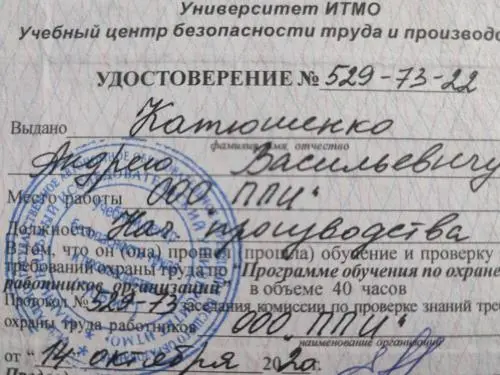 Университет ИТМО
Учебный центр безопасности труда и производс
УДОСТОВЕРЕНИЕ № 529-73-22
Выдано Катюшенко
фамилия имя отчество
Андрею Васильевичу
Место работы ООО "ППЦ"
Должность Нач. производства
В том, что он (она) прошел (прошла) обучение и проверку
требований охраны труда по "Программе обучения по охране
работников организаций" в объеме 40 часов
Протокол № 529-73 заседания комиссии по проверке знаний треб
охраны труда работников ООО "ППЦ"
наименование организации
от "14" октября 20 г.